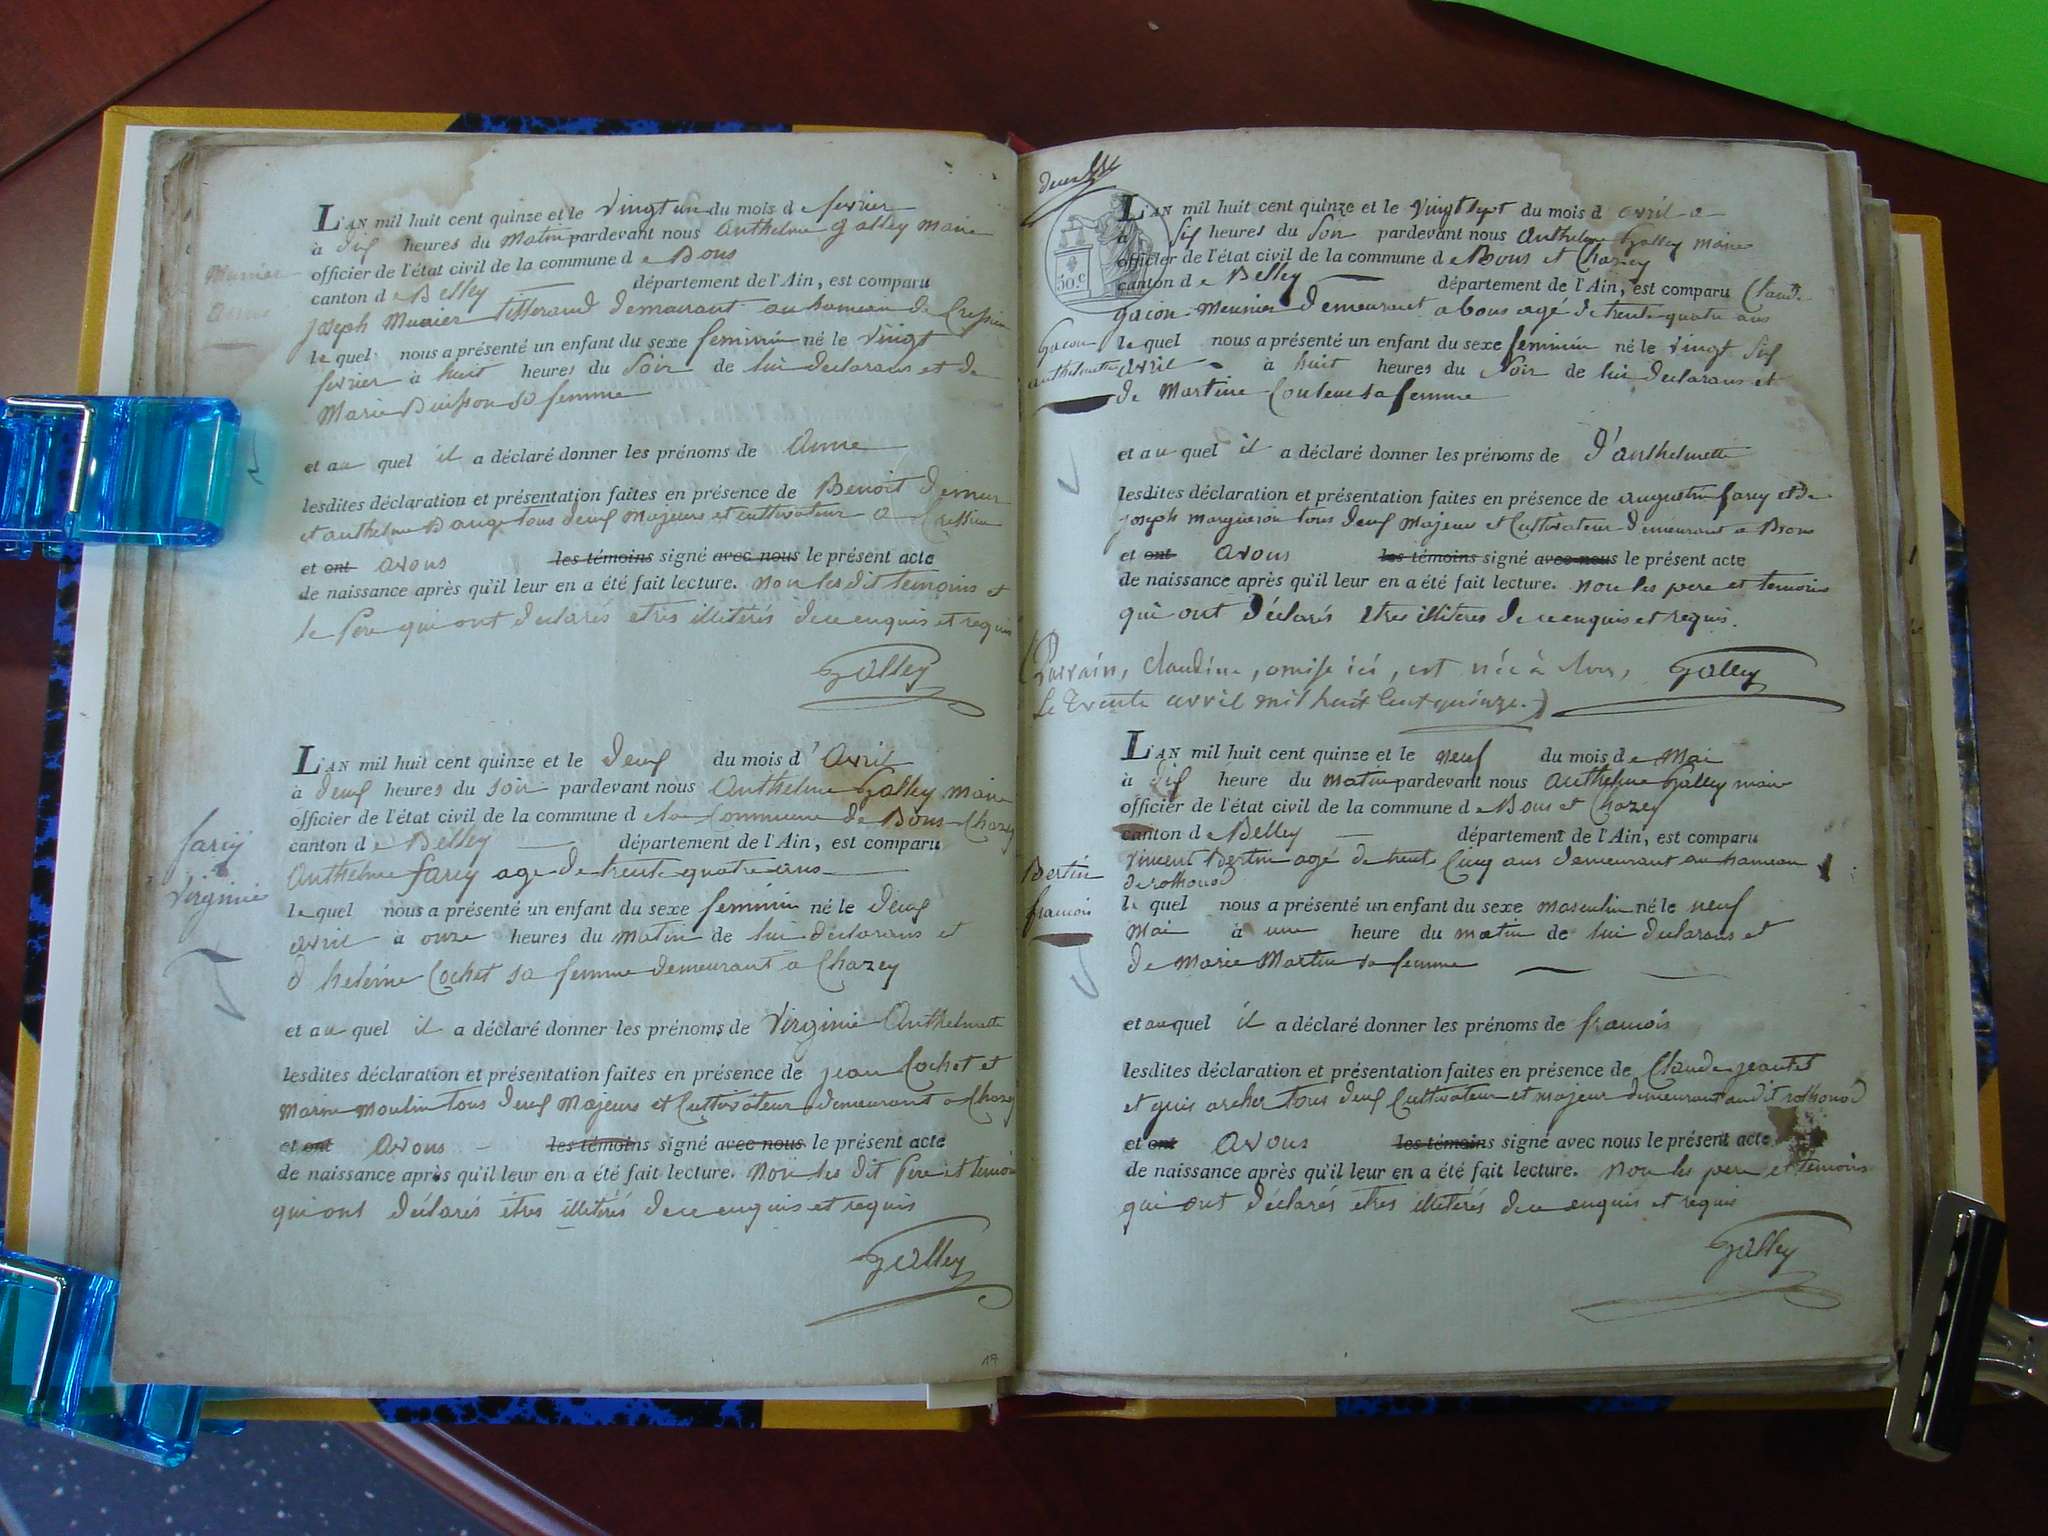 L'AN mil huit cent quinze et le vingt un du mois de fevrier
à dix heures du Matin pardevant nous Anthelme Galley maire
officier de l'état civil de la commune de Bons
canton de Belley département de l'Ain, est comparu
joseph Munier tisserand demeurant au hameau de Cressieu
lequel nous a présenté un enfant du sexe feminin né le vingt
fevrier à huit heures du Soir de lui declarans et de
Marie Buisson sa femme
Munier
Anne
et au quel il a déclaré donner les prénoms de Anne
lesdites déclaration et présentation faites en présence de Benoit
et anthelme tous deux Majeurs et cultivateur a Cressieu
et ont avons les témoins signé avec nous le présent acte
de naissance après qu'il leur en a été fait lecture. Non les dit temoins et
le Pere qui ont declarés etres illiterés de ce enquis et requis
Galley
L'AN mil huit cent quinze et le deux du mois d'Avril
à deux heures du soir pardevant nous Anthelme Galley maire
officier de l'état civil de la commune d ela Commune de Bons Chazey
canton de Belley département de l'Ain, est comparu
Anthelme farcy age de trente quatre ans
farcy
Virginie
lequel nous a présenté un enfant du sexe feminin né le deux
avril à onze heures du matin de lui declarans et
d heleine Cochet sa femme demeurant a Chazey
et au quel il a déclaré donner les prénoms de Virginie Anthelmette
lesdites déclaration et présentation faites en présence de jean Cochet et
Marin Moulin tous deux Majeurs et Cultivateur demeurant a Chazey
et ont avons les témoins signé avec nous le présent acte
de naissance après qu'il leur en a été fait lecture. Non les dit Pere et temoin
qui ont déclarés etres illiterés de ce enquis et requis
Galley
19
50.c
L'AN mil huit cent quinze et le vingt sept du mois d avril a
à six heures du soir pardevant nous Anthelme Galley maire
officier de l'état civil de la commune de Bons et Chazey
canton de Belley département de l'Ain, est comparu Claude
gacon Meunier demeurant a bons agé de trente quatre ans
Gacon
anthelmette
lequel nous a présenté un enfant du sexe feminin né le vingt six
avril à huit heures du Soir de lui declarans et
de Martine Couteur sa femme
et au quel il a déclaré donner les prénoms de d'anthelmette
lesdites déclaration et présentation faites en présence de augustin farcy et de
joseph margueron tous deux Majeur et Cultivateur demeurant a Bons
et ont avons les témoins signé avec nous le présent acte
de naissance après qu'il leur en a été fait lecture. Non les pere et temoins
qui ont déclarés etres illiteres de ce enquis et requis.
(Parrain, Claudine, omise ici, est née à Bons, Galley
Le Trente avril mil huit Cent quinze.)
L'AN mil huit cent quinze et le neuf du mois de Mai
à dix heure du matin pardevant nous Anthelme Galley maire
officier de l'état civil de la commune de Bons et Chazey
canton de Belley département de l'Ain, est comparu
Vincent Bertin agé de trente Cinq ans demeurant au hameau
de rothonod
Bertin
francois
lequel nous a présenté un enfant du sexe masculin né le neuf
Mai à une heure du matin de lui declarans et
de Marie Martin sa femme
et au quel il a déclaré donner les prénoms de francois
lesdites déclaration et présentation faites en présence de Claude jeantet
et guis archer tous deux Cultivateur et majeur demeurant au dit rothonod
et ont avons les témoins signé avec nous le présent acte
de naissance après qu'il leur en a été fait lecture. Non les pere et temoins
qui ont déclarés etres illiterés de ce enquis et requis
Galley